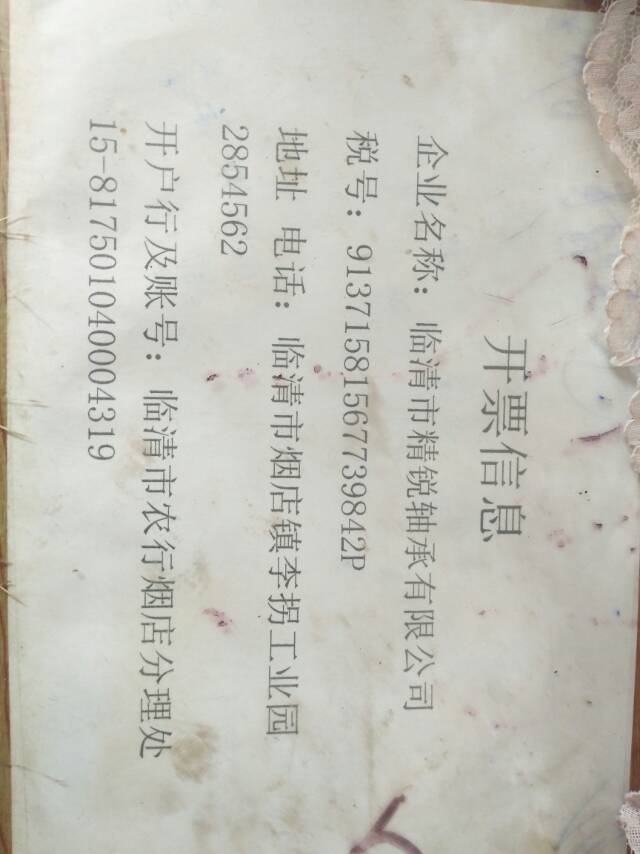 开票信息
企业名称：临清市精锐轴承有限公司
税号：91371581567739842P
地址 电话：临清市烟店镇李拐工业园
2854562
开户行及账号：临清市农行烟店分理处
15-817501040004319